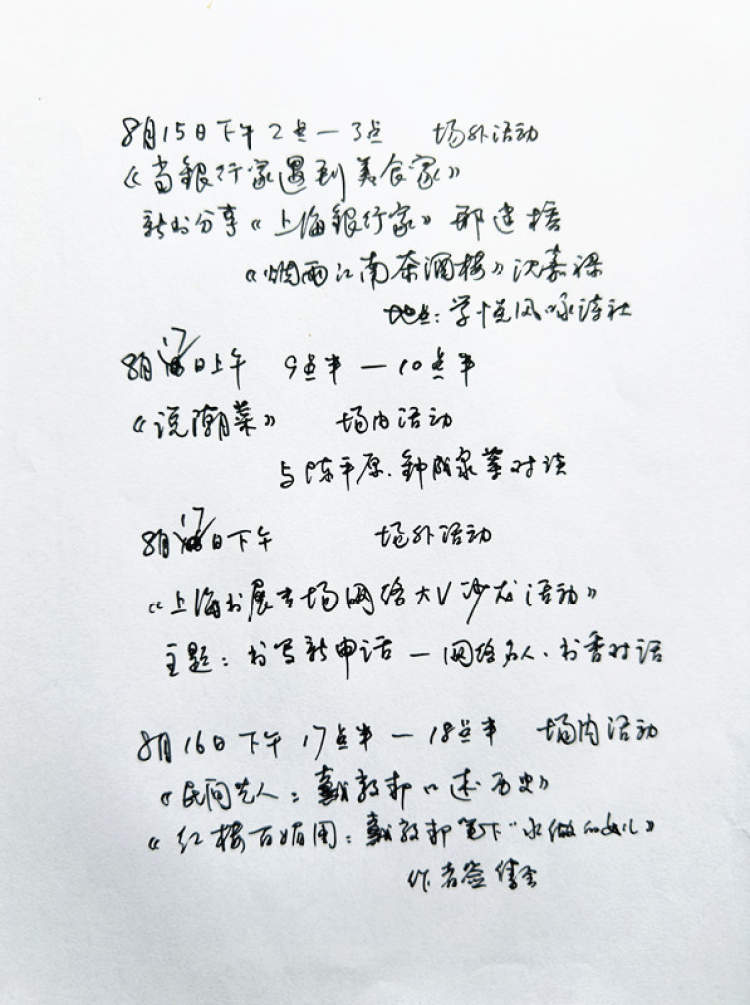 8月15日下午2点—3点 场外活动
《当銀行家遇到美食家》
新书分享《上海銀行家》邢建榕
《烟雨江南茶酒楼》沈嘉禄
地点：学悦风咏诗社
8月17日上午 9点半—10点半
《说潮菜》 场内活动
与陈平原、钟成泉等对谈
8月17日下午 场外活动
《上海书展专场网络大V沙龙活动》
主题：书写新申话—网络名人、书香对话
8月16日下午17点半—18点半 场内活动
《民间艺人：戴敦邦口述历史》
《红楼百媚图：戴敦邦笔下"水做的女儿》
作者签售会